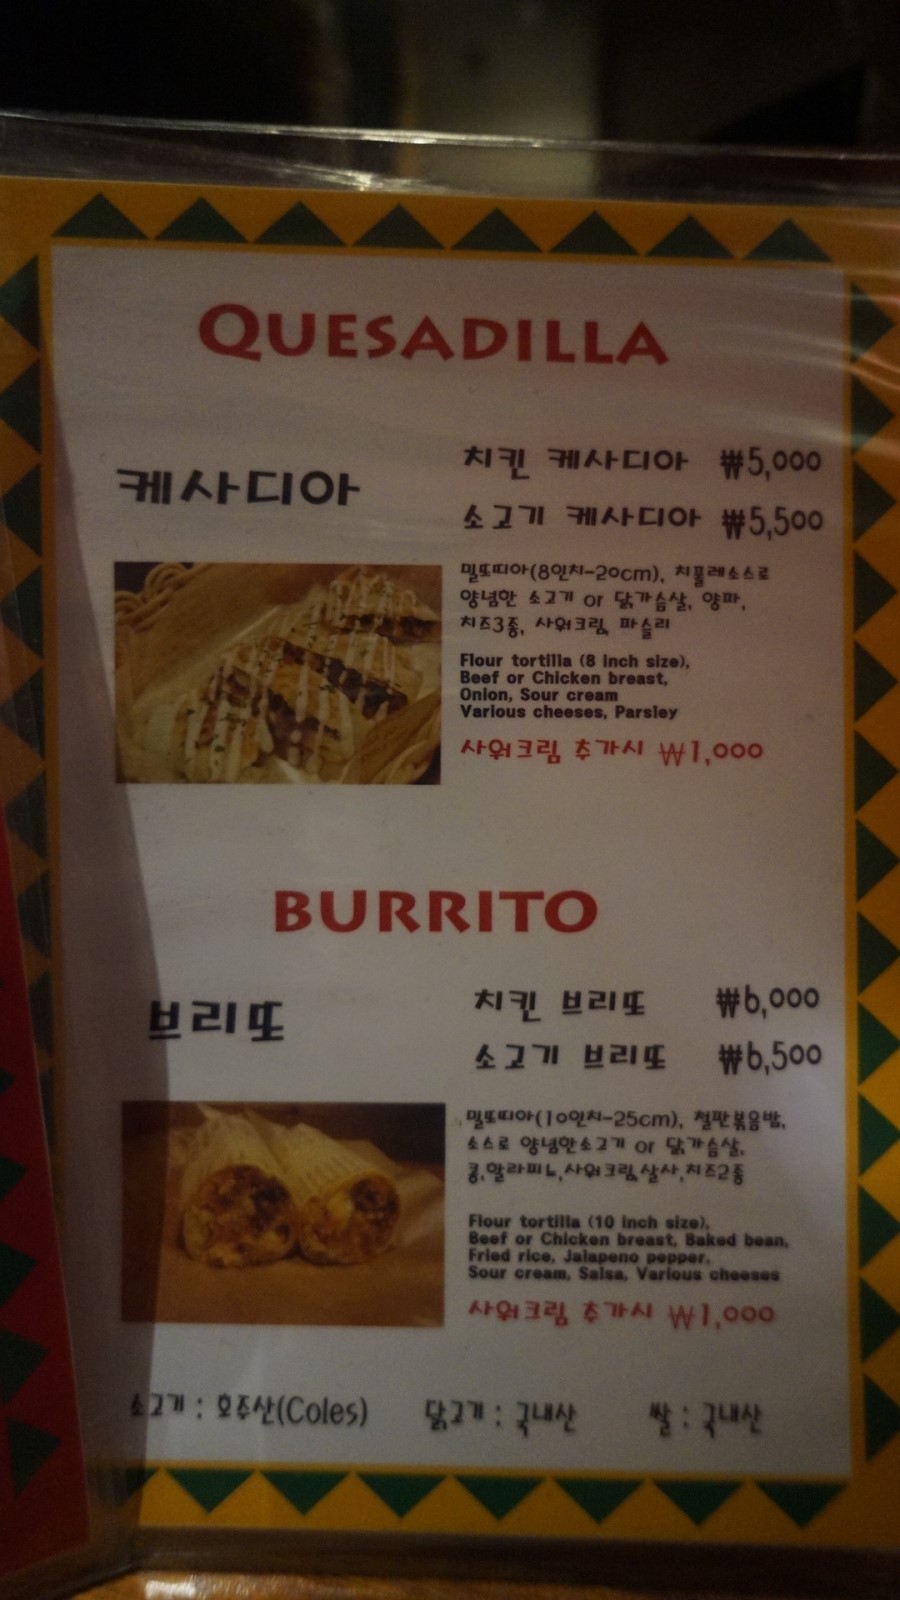 QUESADILLA
케사디아
치킨 케사디아 ₩5,000
소고기 케사디아 ₩5,500
밀또띠아(8인치-20cm), 치폴레소스로
양념한 소고기 or 닭가슴살, 양파,
치즈3종, 사워크림, 파슬리
Flour tortilla (8 inch size),
Beef or Chicken breast,
Onion, Sour cream
Various cheeses, Parsley
사워크림 추가시 ₩1,000
BURRITO
브리또
치킨 브리또 ₩6,000
소고기 브리또 ₩6,500
밀또띠아(10인치-25cm), 철판볶음밥,
소스로 양념한소고기 or 닭가슴살,
콩,할라피노,사워크림,살사,치즈2종
Flour tortilla (10 inch size),
Beef or Chicken breast, Baked bean,
Fried rice, Jalapeno pepper,
Sour cream, Salsa, Various cheeses
사워크림 추가시 ₩1,000
소고기 : 호주산(Coles) 닭고기 : 국내산 쌀 : 국내산